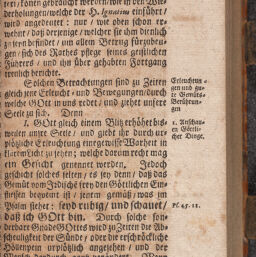 ren/ können gebraucht werden/wie in den Wie-
derholungen/welche der H. Ignatius einführt/
wird angedeutet: nur / wie oben schon er-
wehnt/ daß derjenige / welcher sie ihm dienlich
zu seyn befindet / um allem Betrug fürzubeu-
gen / sich des Rathes pflege seines geistlichen
Führers / und ihn über gehabten Fortgang
treulich berichte.
Solchen Betrachtungen sind zu Zeiten
gleich jene Erleucht- und Bewegungen/durch
welche GOtt in uns redet / und ziehet unsere
Seele zu sich. Denn
1. GOtt gleich einem Blitz erhöhet biß-
weilen unsre Seele / und giebt ihr durch ur-
plötzliche Erleuchtung eingewisse Warheit in
zu sehen; welche darum recht mag
ein Gesicht genennet werden. Jedoch
geschicht solches selten / es sey denn / daß das
Gemüt vom Irdische frey den Göttlichen Ein-
flüssen bequemt ist / jenem gemäß / was im
Psalm stehet: seyd ruhig / und schauet /
daß ich GOtt bin. Durch solche son-
derbare Gnade GOttes wird zu Zeiten die Ab-
scheuligkeit der Sünde / oder die erschröckliche
Höllenpein urplötzlich angesehen / und der
Erleuchtun-
gen und gu-
te Gemüts-
Berührun-
gen
1. Anschau-
en Göttli-
cher Dinge.
Pf. 45. 11.